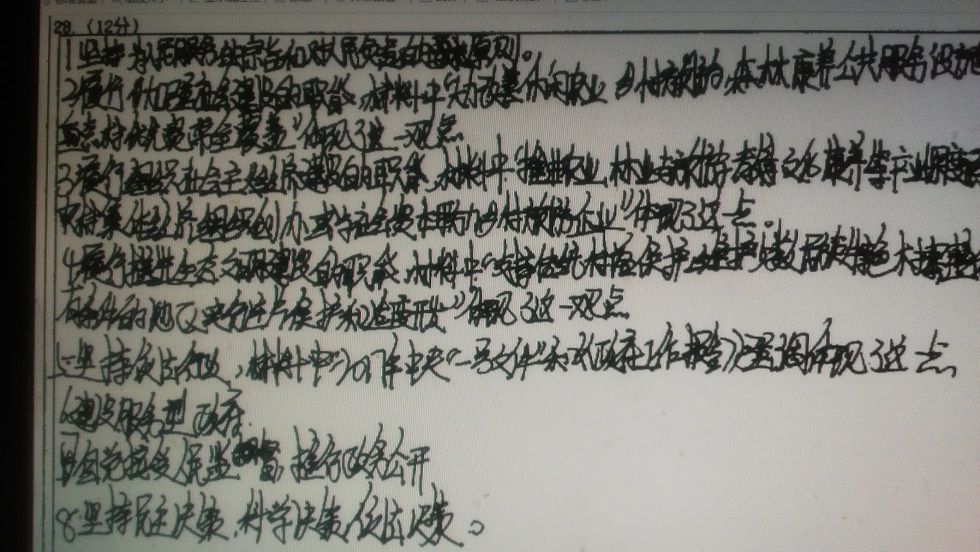 28.（12分）
1.坚持为人民服务的宗旨和对人民负责的原则。
2.履行加强社会建设的职能，材料中“大力改善休闲农业、乡村旅游、森林康养公共服务设施
重点村优先实现全覆盖”体现了这一观点
3.履行组织社会主义经济建设的职能，材料中“推进农业、林业与旅游、教育、文化、康养等产业深度
农村集体经济组织创办或合社会资本乡村旅游企业”体现了这一点。
4.履行推进生态文明建设的职能，材料中“支持传统村落保护，维护少数民族特色村寨整
有条件的地区实行连片保护和适度开发”体现了这一观点
5.坚持依法行政，材料中2017年中央“一号文件”和《政府工作报告》强调体现了这一点
6.建设服务型政府.
7.自觉接受人民监督，推行政务公开
8.坚持民主决策、科学决策、依法决策。